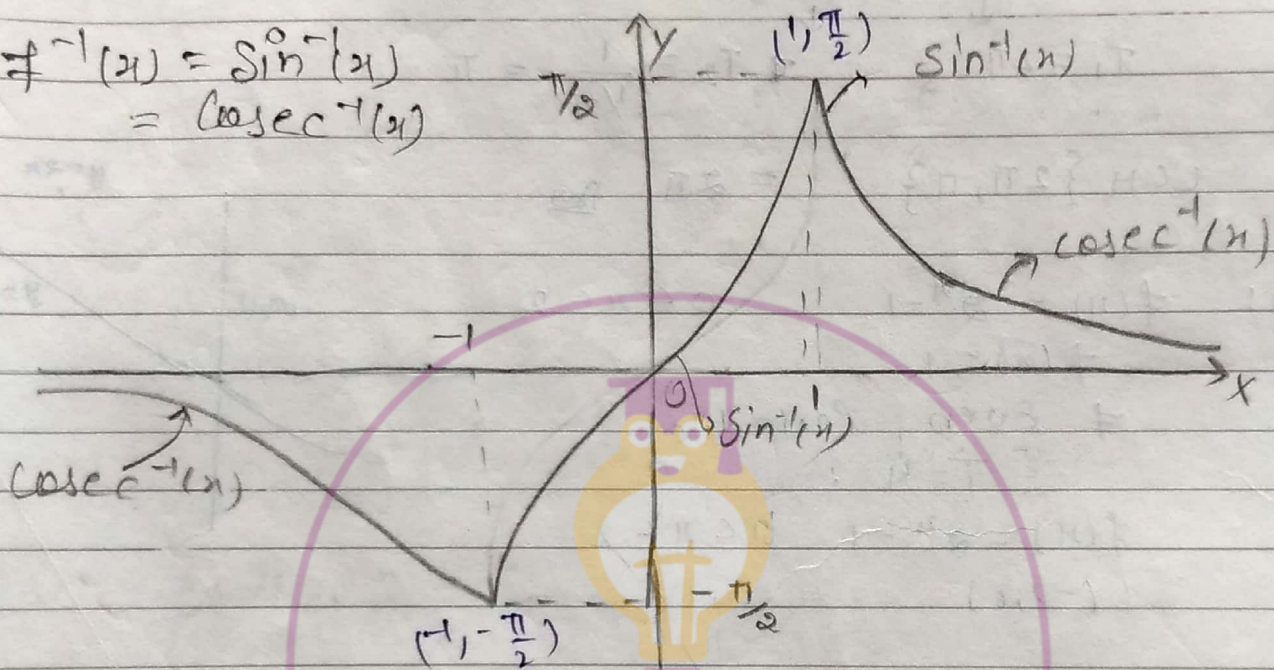 f⁻¹(x) = Sin⁻¹(x)
= Cosec⁻¹(x)
y
(1, π/2)
Sin⁻¹(x)
π/2
cosec⁻¹(x)
-1
0
1
X
Sin⁻¹(x)
cosec⁻¹(x)
(-1, -π/2)
-π/2